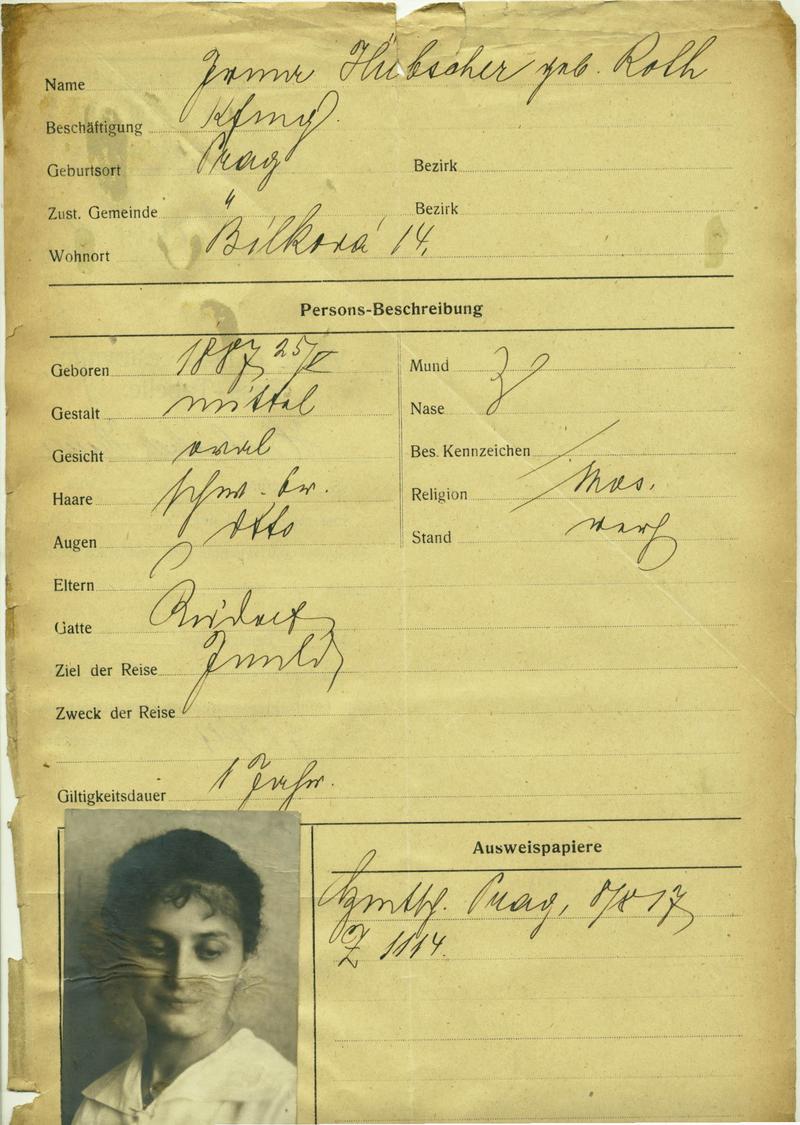 Name Irma Hübscher geb. Roth
Beschäftigung
Geburtsort Prag Bezirk
Zust. Gemeinde " Bezirk
Wohnort Bílková 14.
Persons-Beschreibung
Geboren 1887 25/V Mund
Gestalt mittel Nase
Gesicht oval Bes. Kennzeichen /
Haare schw. br. Religion Mos.
Augen dtto Stand verh
Eltern
Gatte Rudolf
Ziel der Reise Inland
Zweck der Reise
Giltigkeitsdauer 1 Jahr.
Ausweispapiere
Prag, 8/X 17
Z 1114.